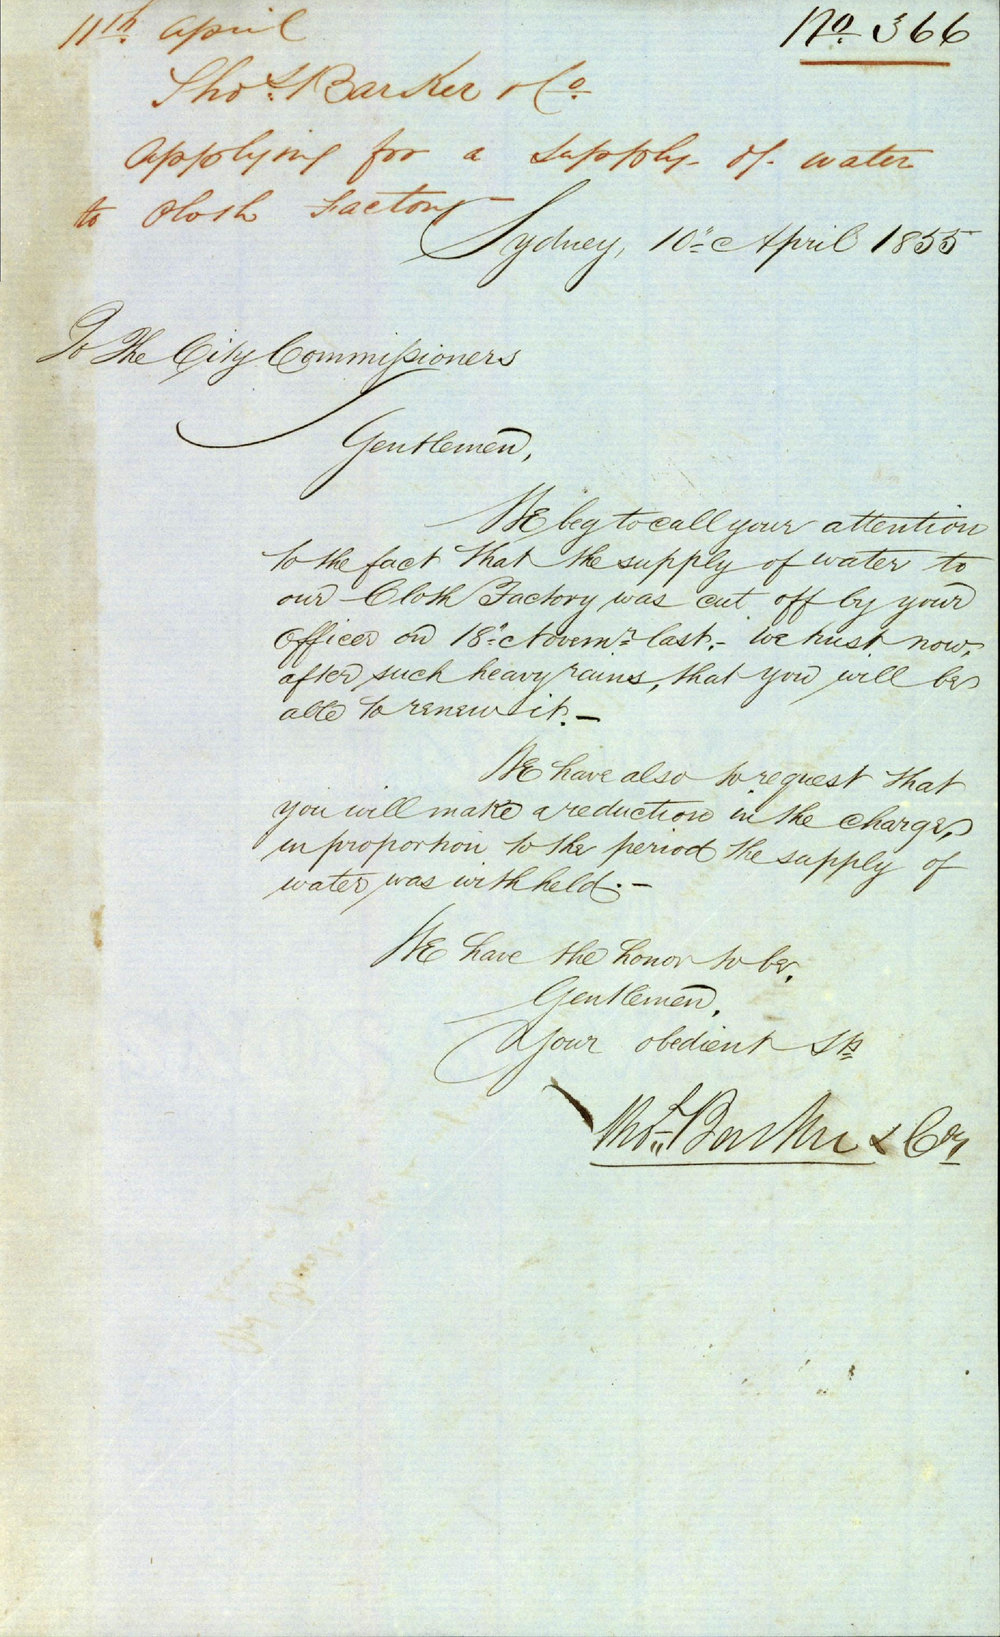 11th April
No. 366
Thos. Barker & Co.
Applying for a supply of water
to Cloth Factory
Sydney, 10" April 1855
To The City Commissioners
Gentlemen,
We beg to call your attention
to the fact that the supply of water to
our Cloth Factory was cut off by your
Officer on 18" Novemr. last. - We trust now,
after such heavy rains, that you will be
able to renew it. -
We have also to request that
you will make a reduction in the charge,
in proportion to the period the supply of
water was withheld. -
We have the honor to be,
Gentlemen,
Your obedient Sts
Thos. Barker & Co.